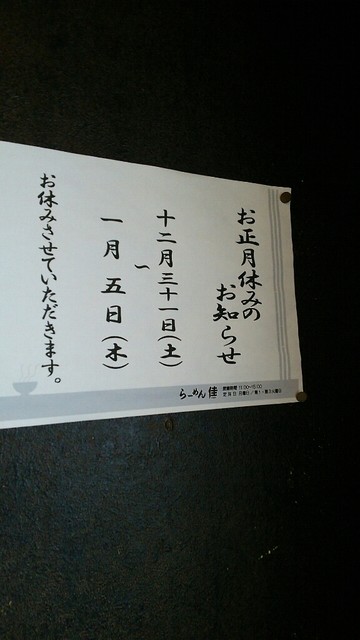 お正月休みの
お知らせ
十二月三十一日（土）
〜
一月五日（木）
お休みさせていただきます。
らーめん 佳
営業時間
定休日